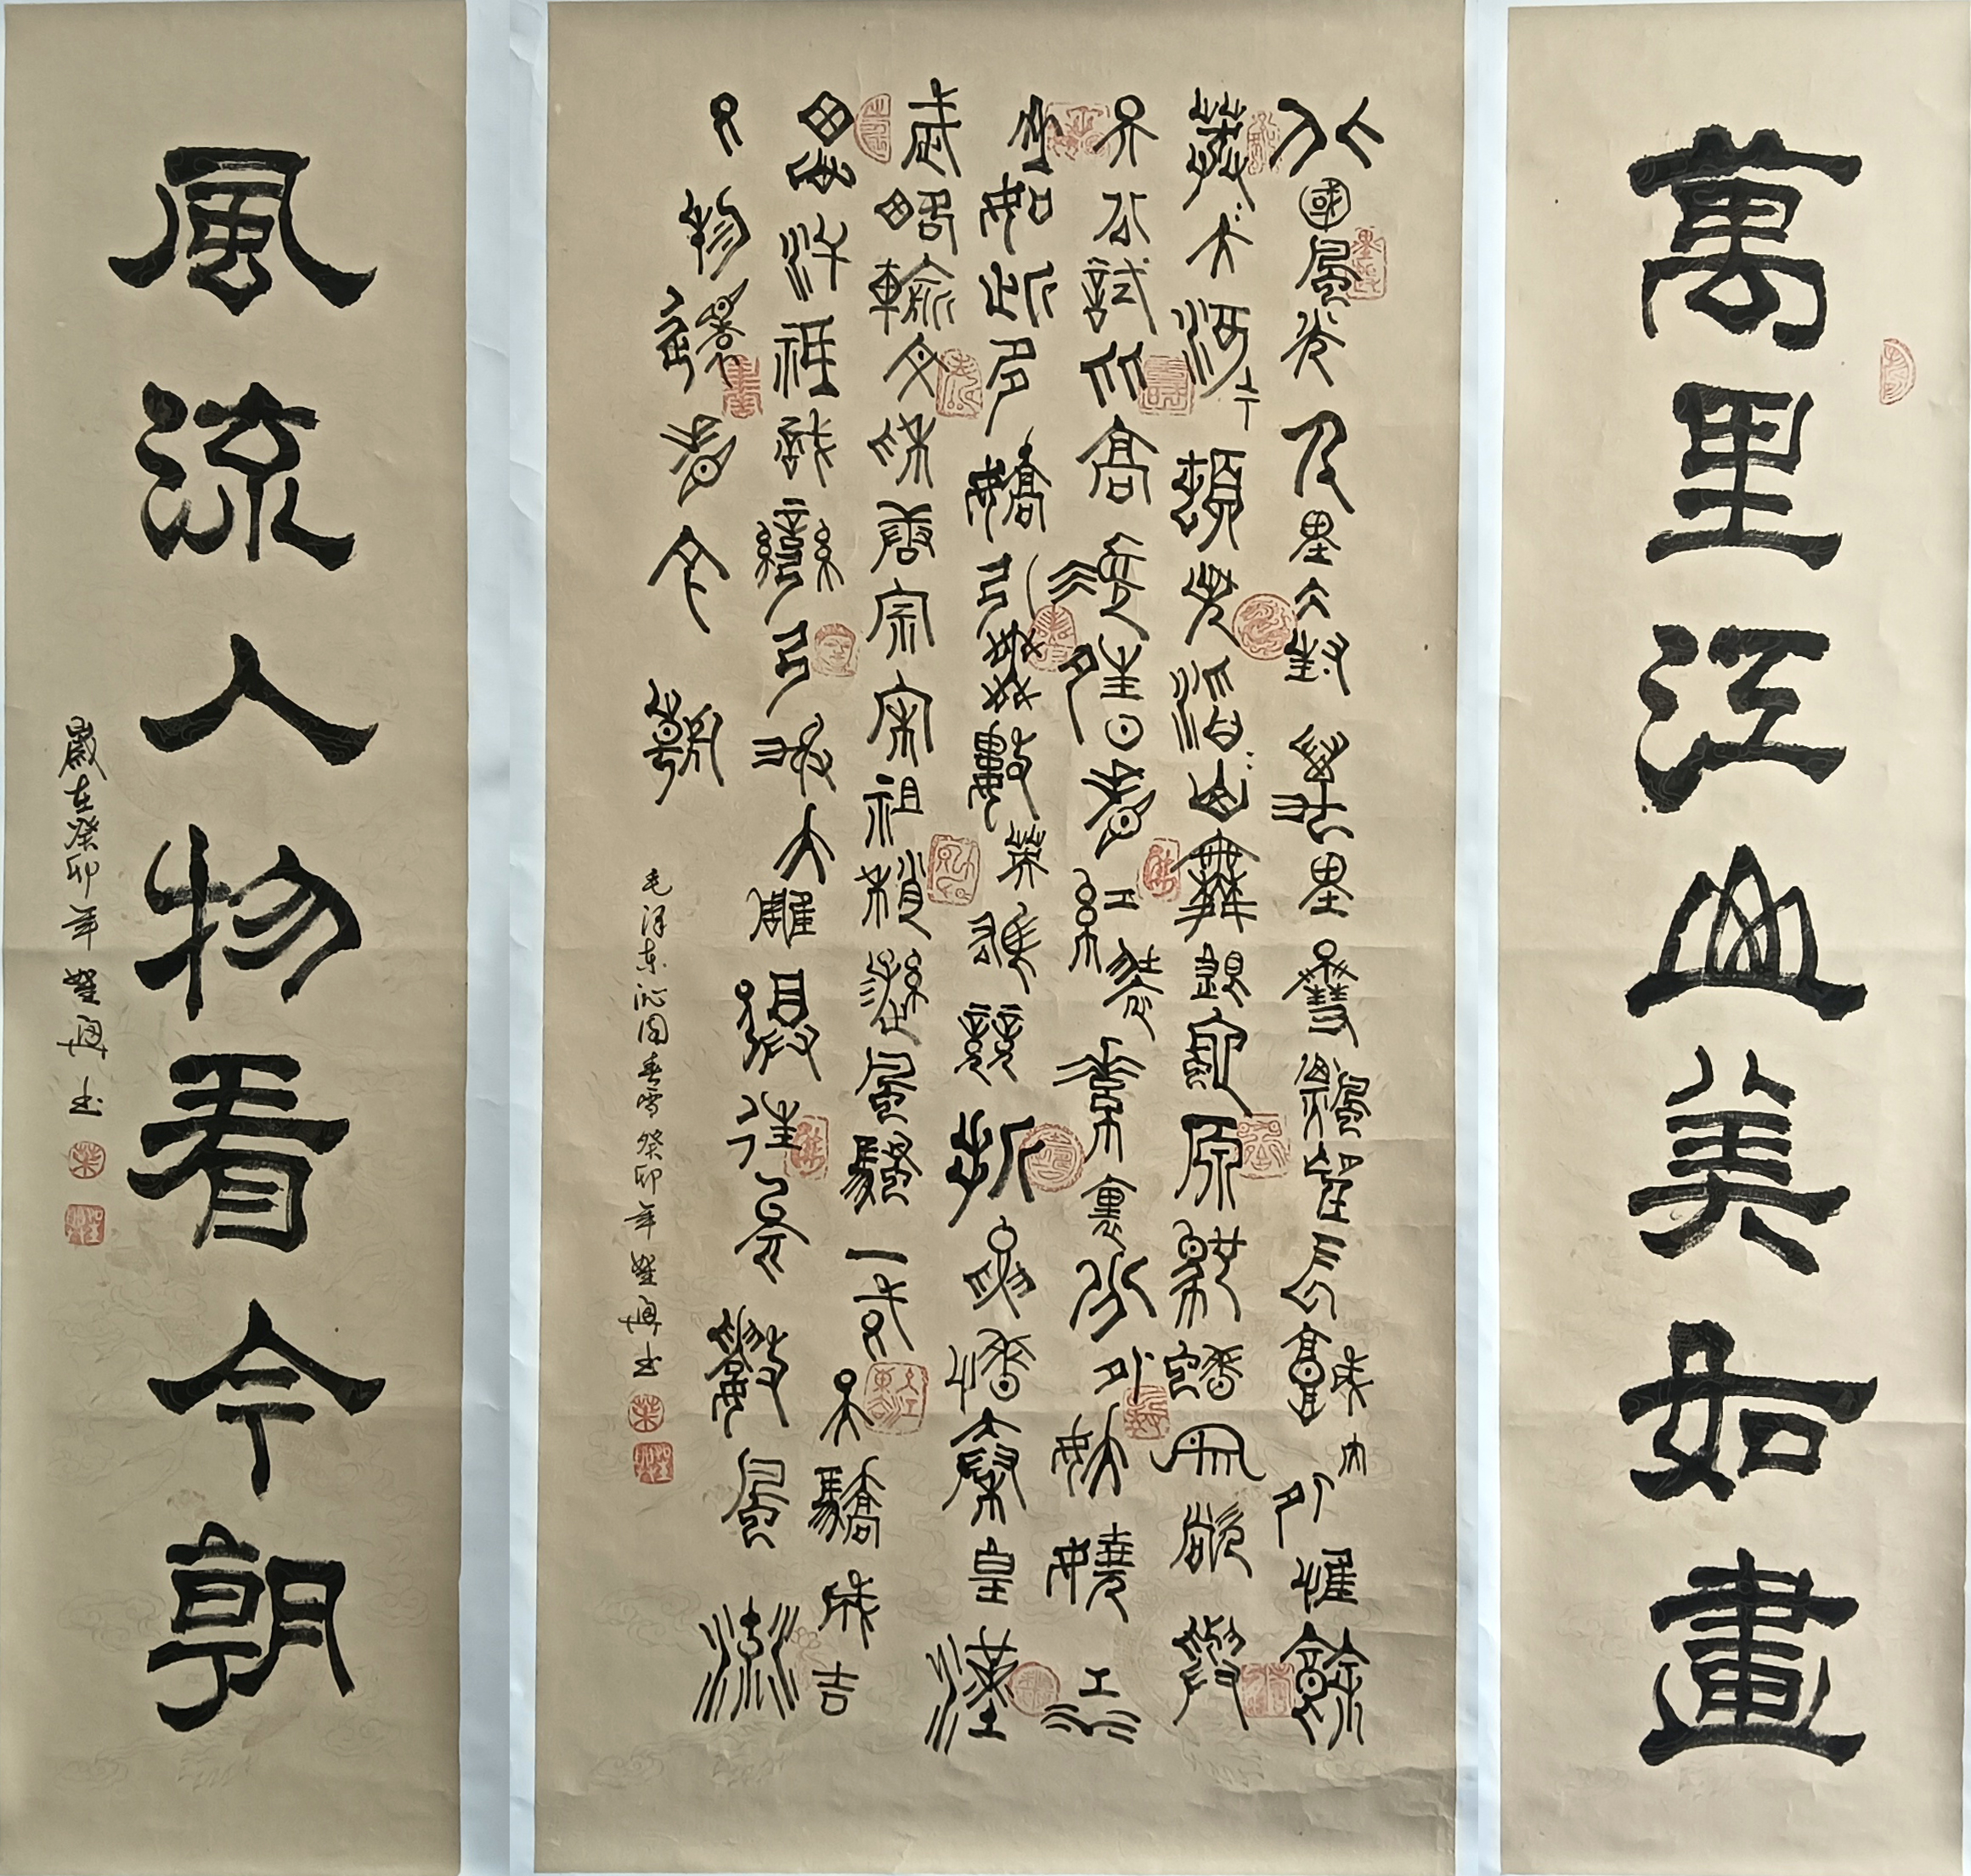 萬里江山美如畫
北國風光千里冰封萬里雪飄望長城內外惟餘
莽莽大河上下頓失滔滔山舞銀蛇原馳蠟象欲與
天公試比高須晴日看紅裝素裹分外妖嬈江
山如此多嬌引無數英雄競折腰惜秦皇漢
武略輸文采唐宗宋祖稍遜風騷一代天驕成吉
思汗祇識彎弓射大雕俱往矣數風流
人物還看今朝
毛泽东沁园春雪癸卯年书
風流人物看今朝
歲在癸卯年书